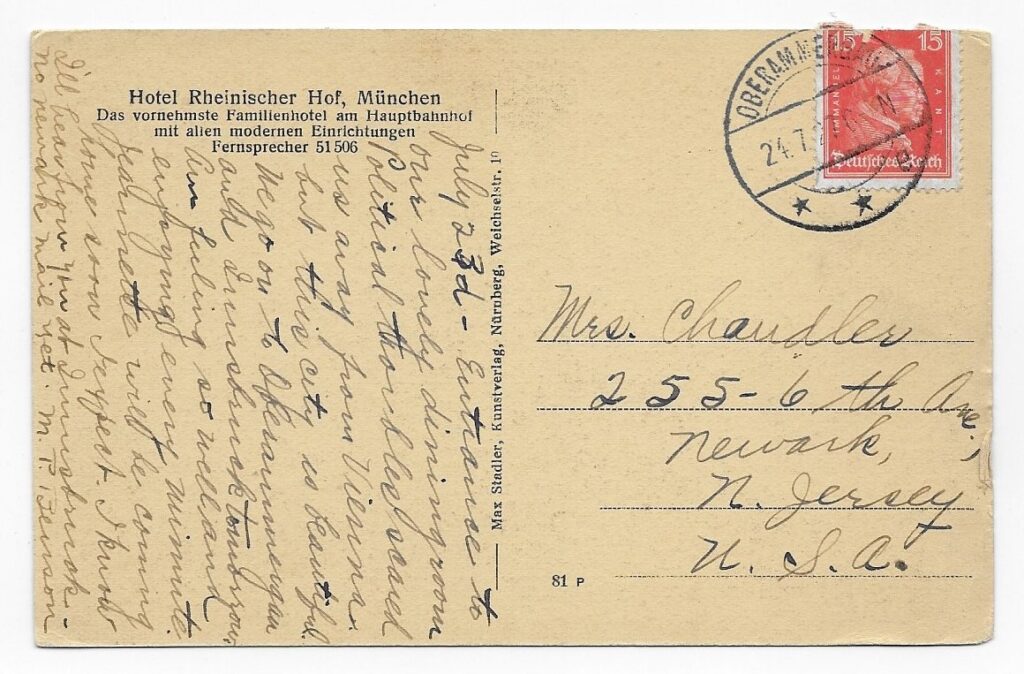 Hotel Rheinischer Hof, München
Das vornehmste Familienhotel am Hauptbahnhof
mit allen modernen Einrichtungen
Fernsprecher 51506
July 23d - Entrance to
our lovely diningroom
Political scared
us away from Vienna.
but this city is
We go on to Oberammergau
and Innsbruck tomorrow.
Am feeling so well and
enjoying every minute.
Jeannette will be coming
home soon I expect. I know
I'll hear from you at Innsbruck -
no newark mail yet. M. P. Benson
Max Stadler, Kunstverlag, Nürnberg, Weichselstr. 10
OBERAMMERGAU
24.7.2 N
15 15
IMMANUEL KANT
Deutsches Reich
Mrs. Chandler
255-6th Ave,
Newark,
N. Jersey
U. S. A.
81 P